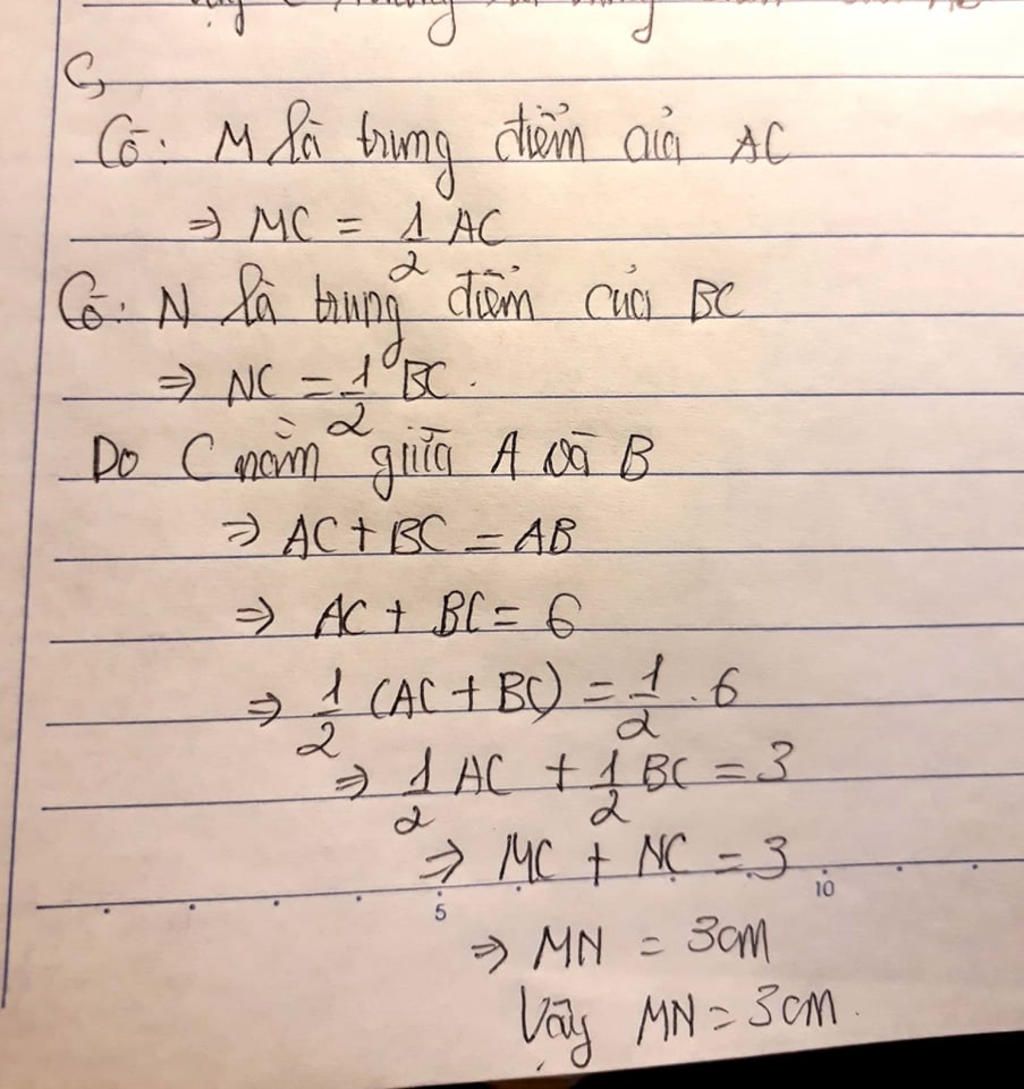 c,
Có: M là trung điểm của AC
⇒ MC = 1/2 AC
Có: N là trung điểm của BC
⇒ NC = 1/2 BC.
Do C nằm giữa A và B
⇒ AC + BC = AB
⇒ AC + BC = 6
⇒ 1/2 (AC + BC) = 1/2 . 6
⇒ 1/2 AC + 1/2 BC = 3
⇒ MC + NC = 3
5 10
⇒ MN = 3cm
Vậy MN = 3cm.